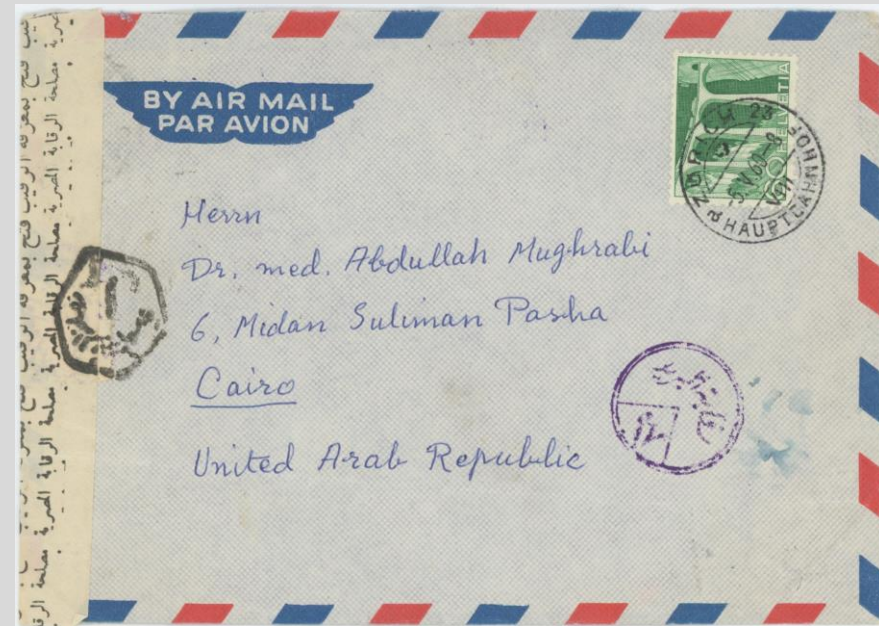 BY AIR MAIL
PAR AVION
HELVETIA
ZÜRICH 23
HAUPTBAHNHOF
Herrn
Dr. med. Abdullah Mughrabi
6, Midan Suliman Pasha
Cairo
United Arab Republic
فتح بمعرفة الرقيب فتح بمعرفة الرقيب
مصلحة الرقابة المصرية مصلحة الرقابة المصرية